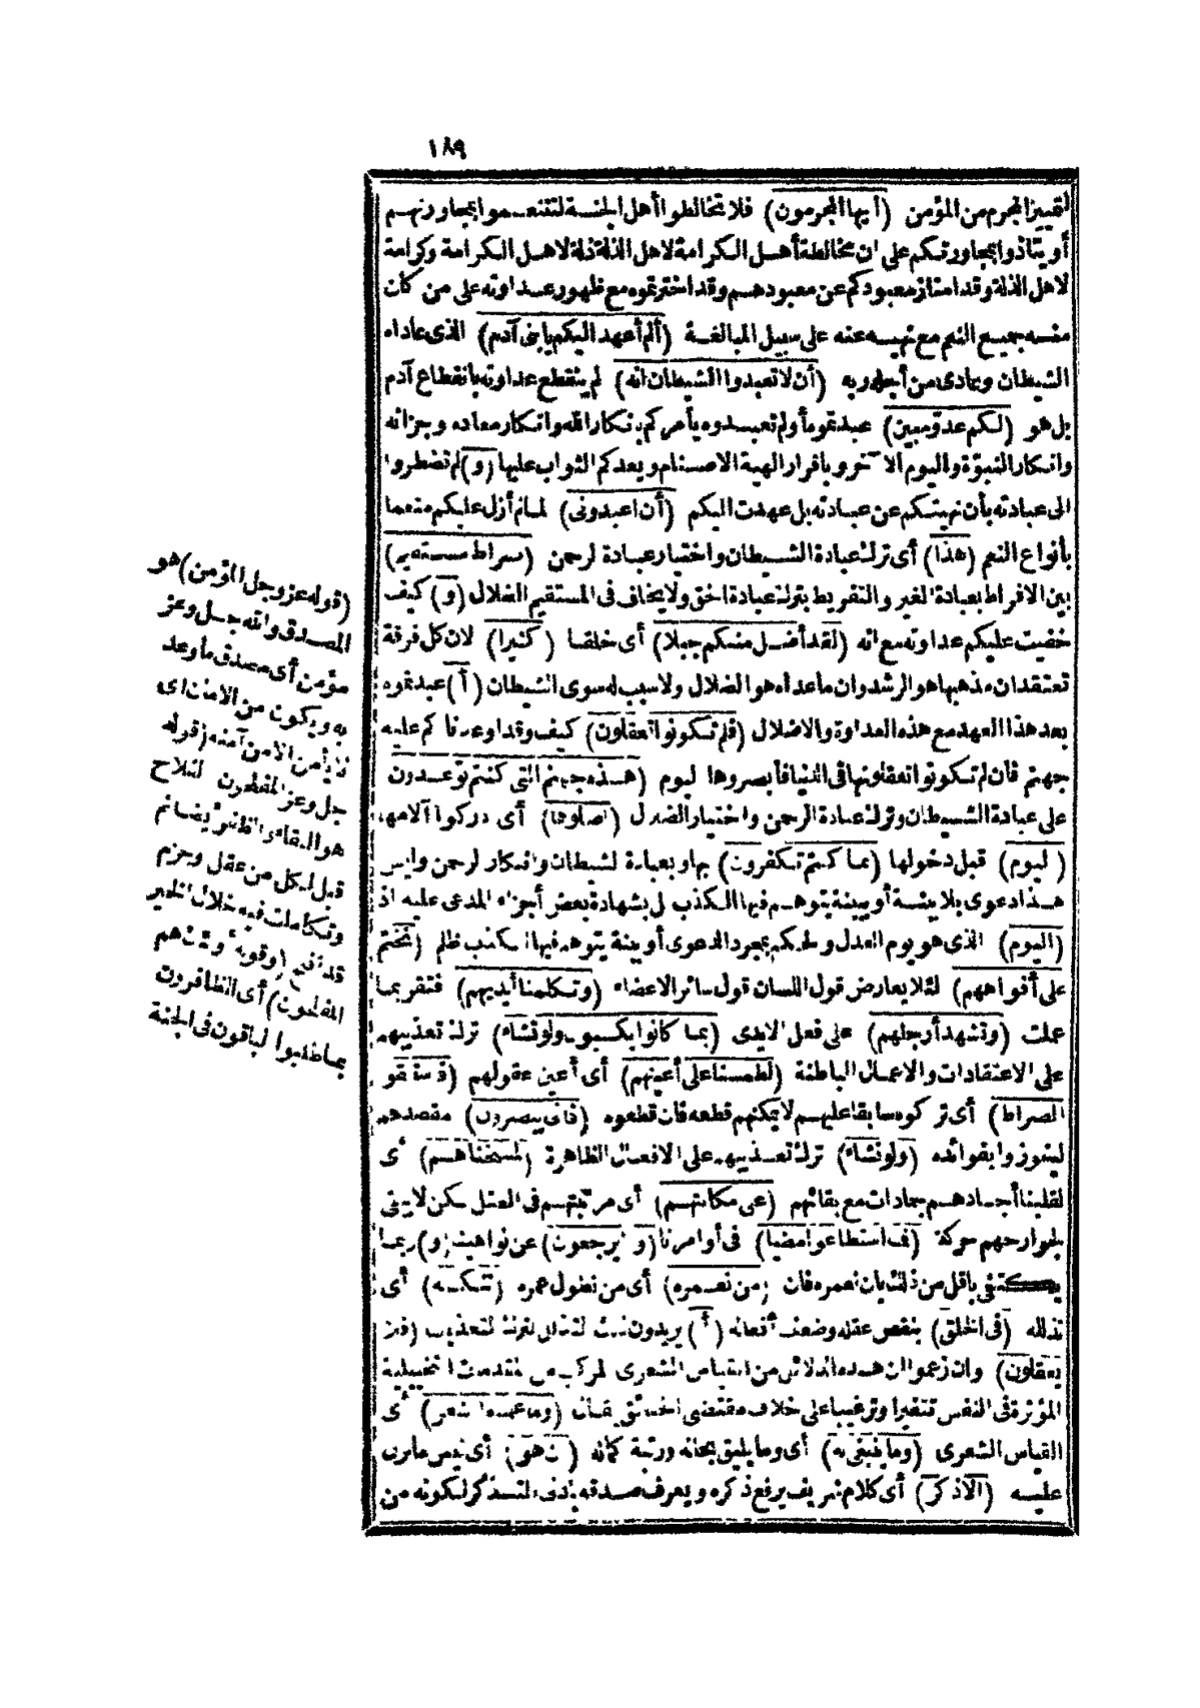 ١٨٩
لتمييز المجرم من المؤمن (أيها المجرمون) فلا تخالطوا أهل الجنة لتتنعموا بمجاورتهم
أو يتأذوا بمجاورتكم على ان مخالطة أهل الكرامة لاهل الذلة ذلة لاهل الكرامة وكرامة
لاهل الذلة وقد امتاز معبودكم عن معبودهم وقد اخترتموه مع ظهور عداوته على من كان
منه جميع النعم مع نهيه عنه على سبيل المبالغة (ألم أعهد اليكم يا بنى آدم) الذى عاداه
الشيطان وعادى من أجله ربه (أن لا تعبدوا الشيطان انه) لم ينقطع عداوته بانقطاع آدم
بل هو (لكم عدوّ مبين) عبدتموه أو لم تعبدوه يأمركم بانكار الله وانكار معاده وجزائه
وانكار النبوّة واليوم الآخر وباقرار الهية الاصنام ويعدكم الثواب عليها (و) لم تضطروا
الى عبادته بأن نهيتكم عن عبادته بل عهدت اليكم (أن اعبدونى) لما لم أزل عليكم منعما
بأنواع النعم (هذا) أى ترك عبادة الشيطان واختيار عبادة الرحمن (صراط مستقيم)
بين الافراط بعبادة الغير والتفريط بترك عبادة الحق ولا يخاف فى المستقيم الضلال (و) كيف
خفيت عليكم عداوته مع انه (لقد أضل منكم جبلا) أى خلقا (كثيرا) لان كل فرقة
تعتقد ان مذهبها هو الرشد وان ماعداه هو الضلال ولا سبب له سوى الشيطان (أ) عبدتموه
بعد هذا العهد مع هذه العداوة والاضلال (فلم تكونوا تعقلون) كيف وقد أوعدناكم عليه
جهنم فان لم تكونوا تعقلونها فى الدنيا فأبصروها اليوم (هذه جهنم التى كنتم توعدون)
على عبادة الشيطان وترك عبادة الرحمن واختيار الضلال (اصلوها) أى دركوا آلامها
(اليوم) قبل دخولها (بما كنتم تكفرون) بها وبعبادة الشيطان وانكار الرحمن وليس
هذا دعوى بلا بينة أو ببينة يتوهم فيها الكذب بل بشهادة بعض أجزاء المدعى عليه اذ
(اليوم) الذى هو يوم العدل والحكم بمجرد الدعوى أو بينة يتوهم فيها الكذب ظلم (نختم
على أفواههم) لئلا يعارض قول اللسان قول سائر الاعضاء (وتكلمنا أيديهم) فتقر بما
عملت (وتشهد أرجلهم) على فعل الايدى (بما كانوا يكسبون ولو نشاء) ترك تعذيبهم
على الاعتقادات والاعمال الباطنة (لطمسنا على أعينهم) أى أعين عقولهم (فاستبقوا
الصراط) أى تركوه سابقا عليهم لا يمكنهم قطعه فان قطعوه (فأنى يبصرون) مقصدهم
ليفوزوا بفوائده (ولو نشاء) ترك تعذيبهم على الافعال الظاهرة (لمسخناهم) أى
لقلبنا أجسادهم جمادات مع بقائهم (على مكانتهم) أى مرتبتهم فى العقل لكن لا يبقى
لجوارحهم حركة (فما استطاعوا مضيا) فى أوامرنا (و لا يرجعون) عن نواهينا (و) ربما
يكتفى باقل من ذلك بان نعمره فان (من نعمره) أى من نطول عمره (ننكسه) أى
نذلله (فى الخلق) بنقص عقله وضعف أفعاله (أ) يريدون لترك التعذيب (فلا
يعقلون) وان زعموا ان هذه الدلائل من القياس الشعرى المركب من مقدمات تخييلية
المؤثرة فى النفس تنفيرا وترغيبا على خلاف مقتضى الحقائق يقال (وما علمناه الشعر) أى
القياس الشعرى (وما ينبغى له) أى وما يليق بحاله ورتبة كماله (ان هو) أى ليس ما نزل
عليه (الا ذكر) أى كلام شريف يرفع ذكره ويعرف صدقه بادنى التذكر لكونه من
(قوله عز وجل المؤمن) هو
المصدق والله جل وعز
مؤمن أى مصدق ما وعد
به ويكون من الامان أى
لا يأمن الا من آمنه (قوله
جل وعز المفلحون) الفلاح
هو البقاء والظفر أيضا ثم
قيل لكل من عقل وحزم
وتكاملت فيه خلال الخير
قد أفلح (وقوله أولئك هم
المفلحون) أى الظافرون
بما طلبوا الباقون فى الجنة